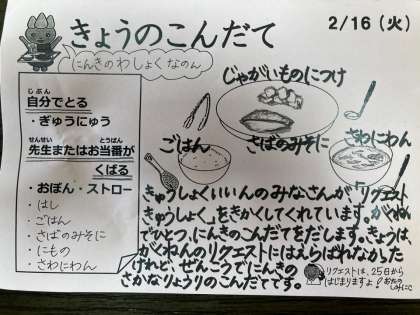 きょうのこんだて
2/16(火)
にんきのわしょくなのん
じぶん
自分でとる
・ぎゅうにゅう
せんせい とうばん
先生またはお当番が
くばる
・おぼん・ストロー
・はし
・ごはん
・さばのみそに
・にもの
・さわにわん
じゃがいものにつけ
ごはん
さばのみそに
さわにわん
きゅうしょくいいんのみなさんが「リクエスト
きゅうしょく」をきかくしてくれています。がくねん
でひとつ、にんきのこんだてをだします。きょうは、
がくねんのリクエストにはえらばれなかった
けれど、ぜんこうでにんきの
さかなりょうりのこんだてです。
リクエストは、25日から
はじまりますよ